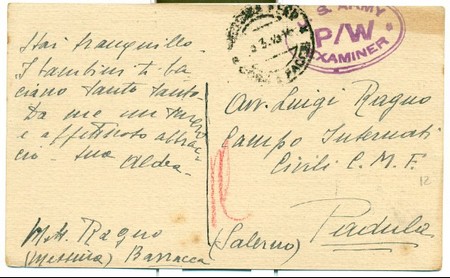 Stai tranquillo.
I bambini ti ba-
ciano tanto tanto
Da me un
e affettuoso abbrac-
cio. tua Aldea
M. Ragno
(Messina) Baracca
U.S. ARMY
P/W
EXAMINER
Avv. Luigi Ragno
Campo Internati
Civili C.M.F.
12
Padula
(Salerno)